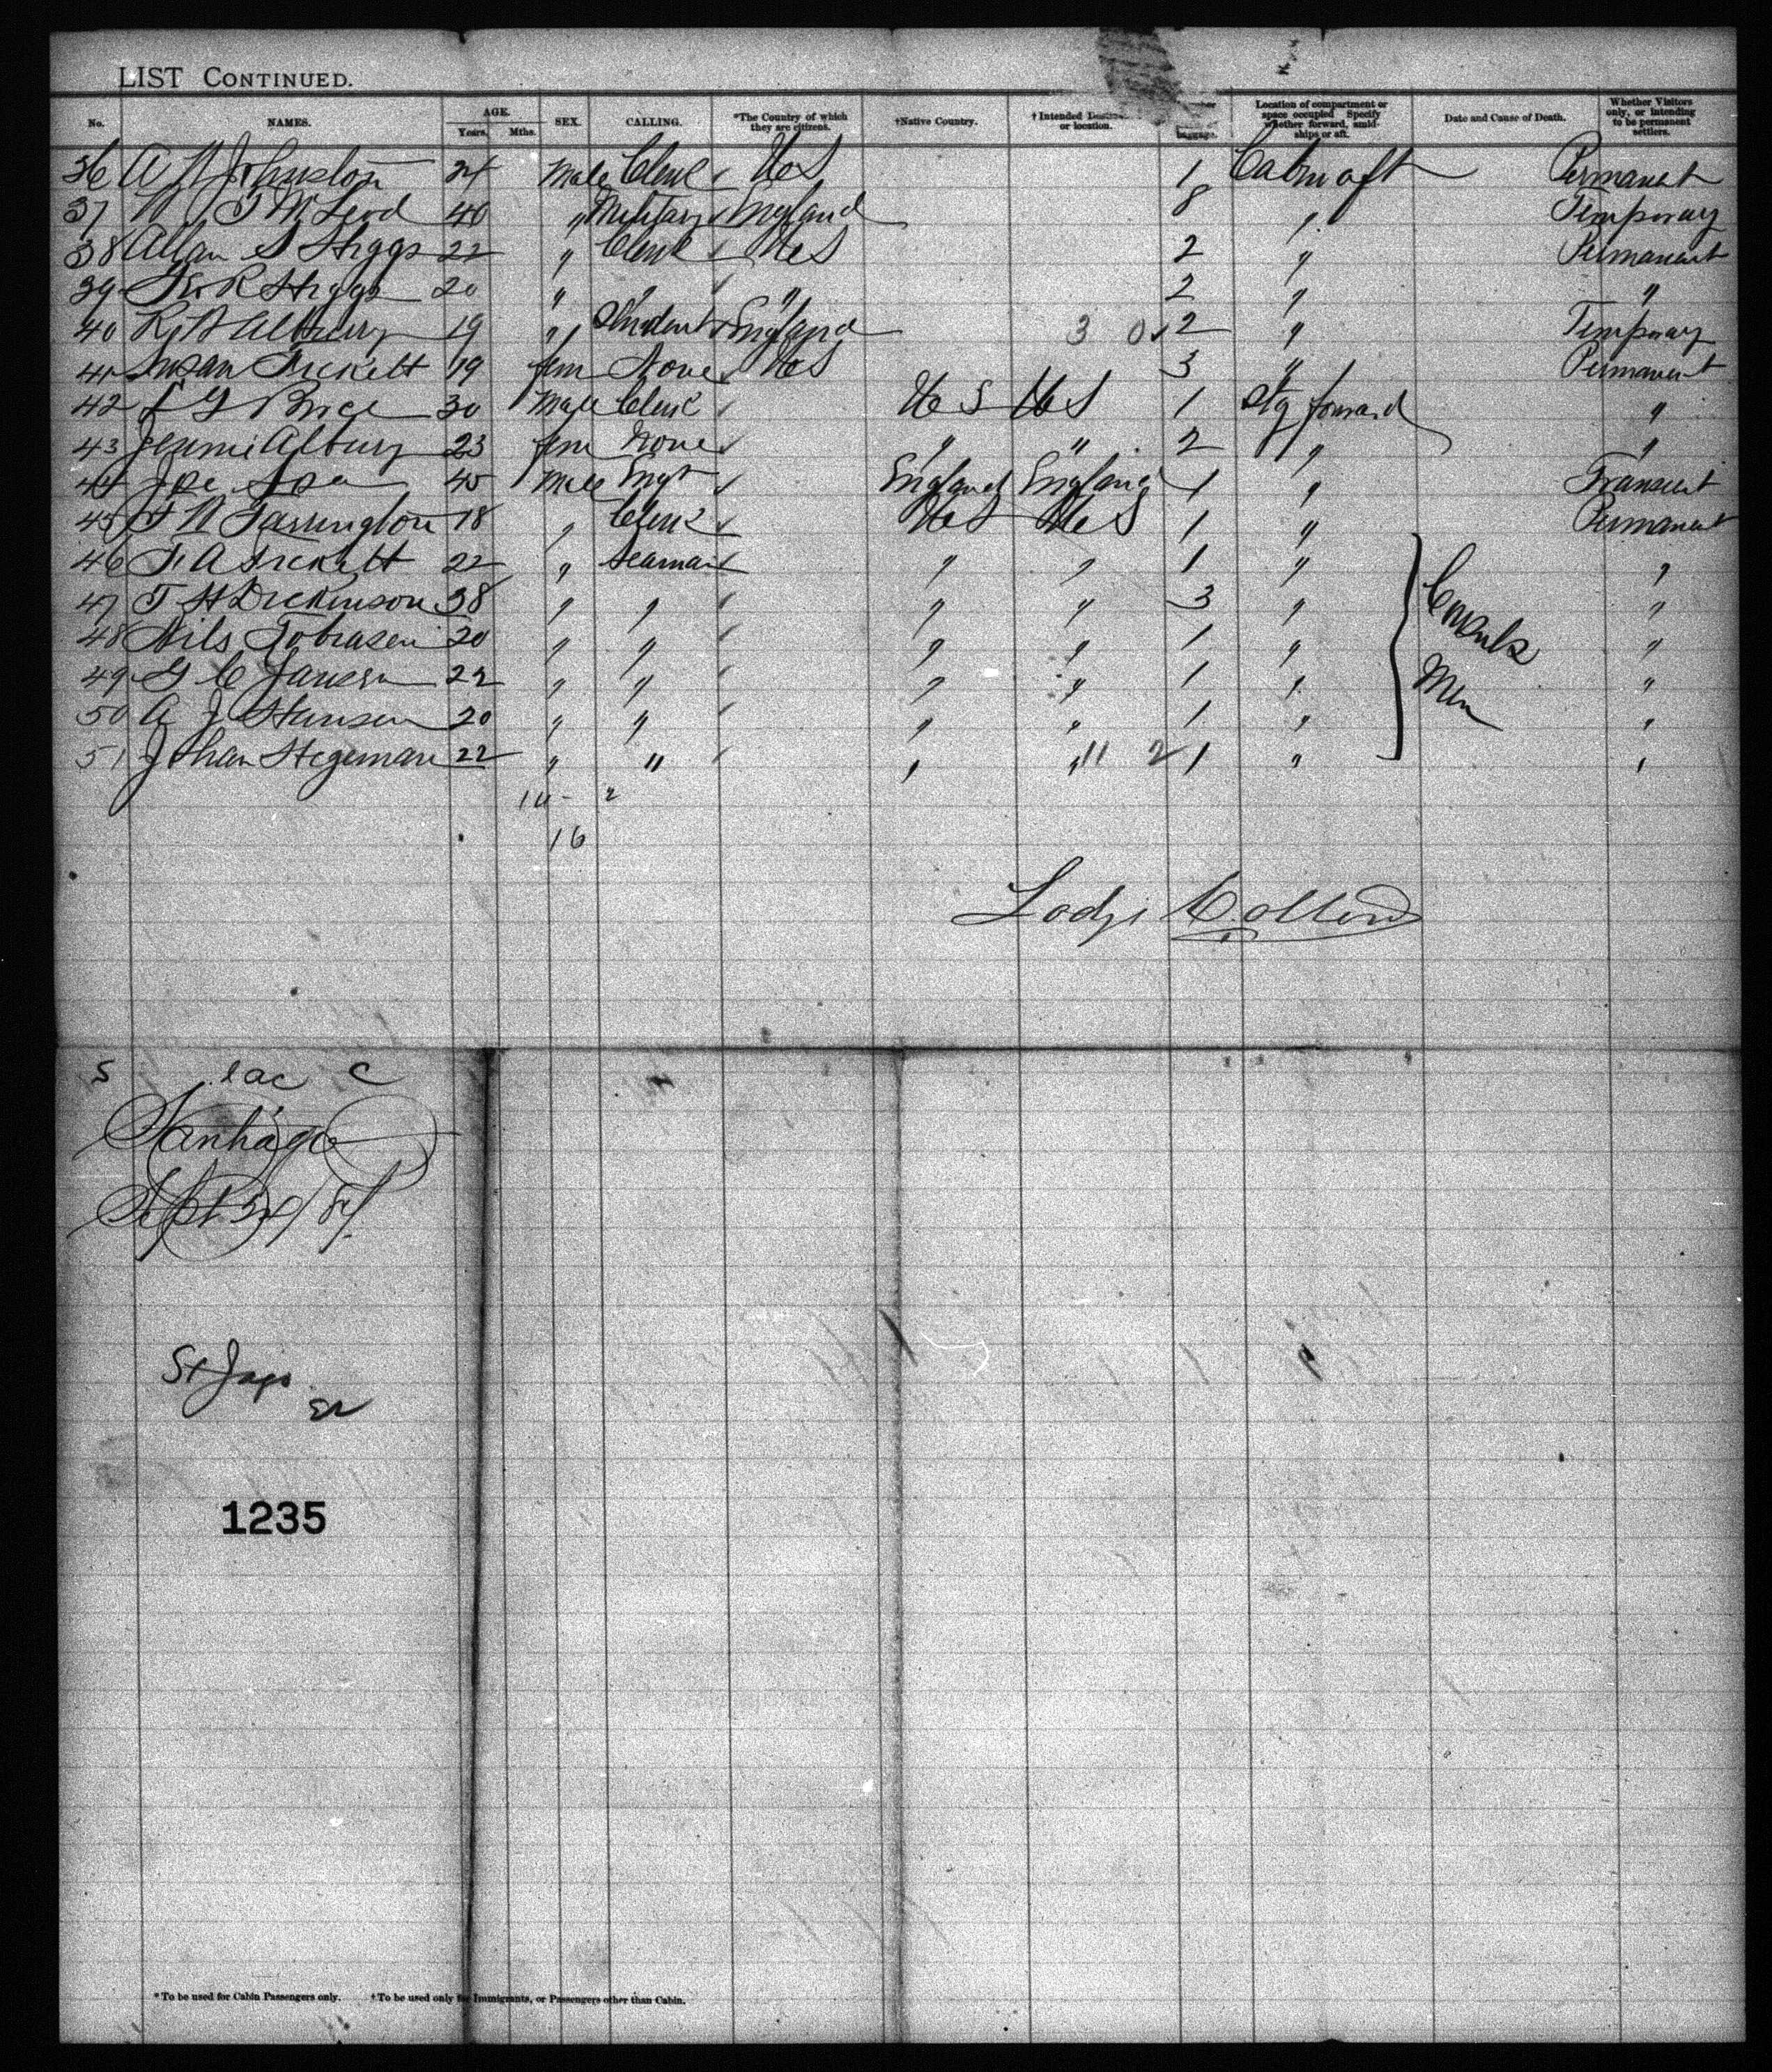 LIST CONTINUED.
No. NAMES. AGE. Years. Mths. SEX. CALLING. *The Country of which they are citizens. †Native Country. †Intended Destina or location. baggage. Location of compartment or space occupied Specify whether forward, amid-ships or aft. Date and Cause of Death. Whether Visitors only, or intending to be permanent settlers.
36 A N Johnston 24 Male Clerk U S 1 Cabin aft Permanent
37 W J McLeod 40 " Military England 8 " Temporary
38 Allan S Higgs 22 " Clerk U S 2 " Permanent
39 R Higgs 20 " " " 2 " "
40 R A Albury 19 " Student England 3 0 2 " Temporary
41 Susan Pickett 19 fem None U S 3 " Permanent
42 G Price 30 Male Clerk U S U S 1 Stg forward "
43 Jennie Albury 23 fem None " " 2 " "
44 Joe 45 Male England England 1 " Transient
45 J N Farrington 18 " Clerk U S U S 1 " Permanent
46 F A Pickett 22 " Seaman " " 1 " "
47 T H Dickinson 38 " " " " 3 " "
48 Nils Tobiasen 20 " " " " 1 " Consuls "
49 G C Jansen 22 " " " " 1 " Men "
50 A J Hansen 20 " " " " 1 " "
51 Johan Stegeman 22 " " " " 11 2 1 " "
14 - 2
16
S lac C
Santiago
Sept 24/87
St Jago
1235
*To be used for Cabin Passengers only. †To be used only for Immigrants, or Passengers other than Cabin.